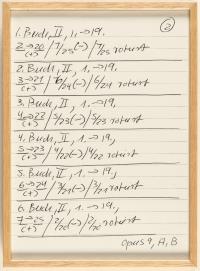 ②
1. Buch, II, 1, → 19,
2→20/(+) / 7/25(−) / 7/25 robust
2. Buch, II, 1. → 19,
3→21/(+) / 6/24(−) / 6/24 robust
3. Buch, II, 1. → 19,
4→22/(+) / 5/23(−) / 5/23 robust
4. Buch, II, 1. → 19,
5→23/(+) / 4/22(−) / 4/22 robust
5. Buch, II, 1. → 19,
6→24/(+) / 3/21(−) / 3/21 robust
6. Buch, II, 1. → 19,
7→25/(+) / 2/20(−) / 2/20 robust
opus 9, A, B